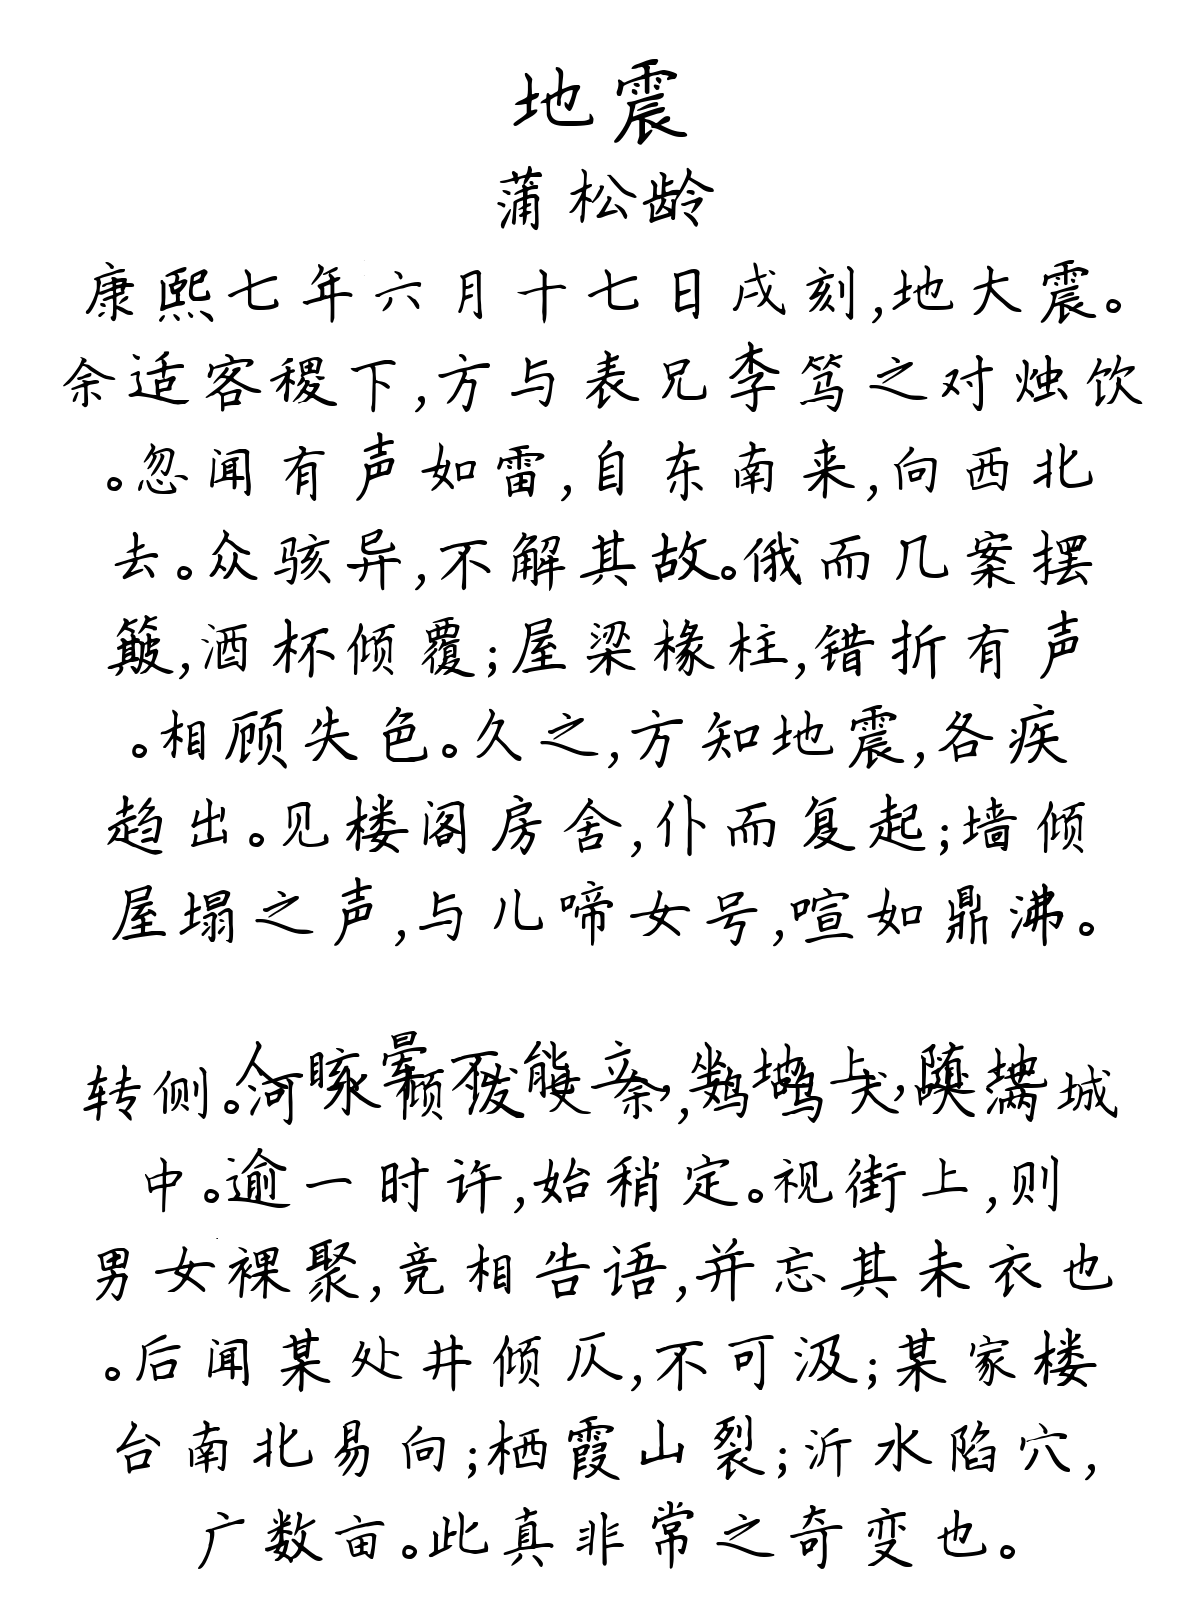 地震
蒲松龄
康熙七年六月十七日戌刻,地大震。
余适客稷下,方与表兄李笃之对烛饮
。忽闻有声如雷,自东南来,向西北
去。众骇异,不解其故。俄而几案摆
簸,酒杯倾覆;屋梁椽柱,错折有声
。相顾失色。久之,方知地震,各疾
趋出。见楼阁房舍,仆而复起;墙倾
屋塌之声,与儿啼女号,喧如鼎沸。
人眩晕不能立,坐地上,随地
转侧。河水倾泼丈余,鸡鸣犬吠满城
中。逾一时许,始稍定。视街上,则
男女裸聚,竞相告语,并忘其未衣也
。后闻某处井倾仄,不可汲;某家楼
台南北易向;栖霞山裂;沂水陷穴,
广数亩。此真非常之奇变也。